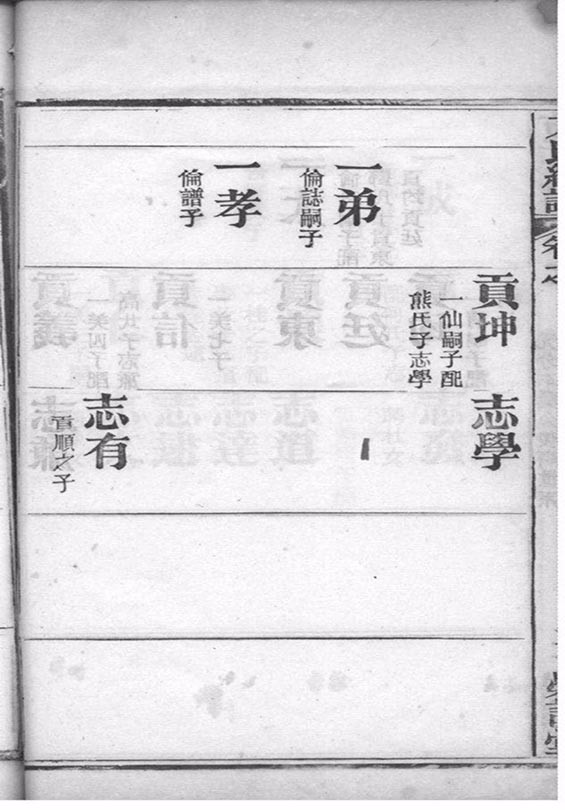 貢坤
一仙嗣子配
熊氏子志學
志學
一弟
倫誌嗣子
一孝
倫譜子
志有
貢順之子